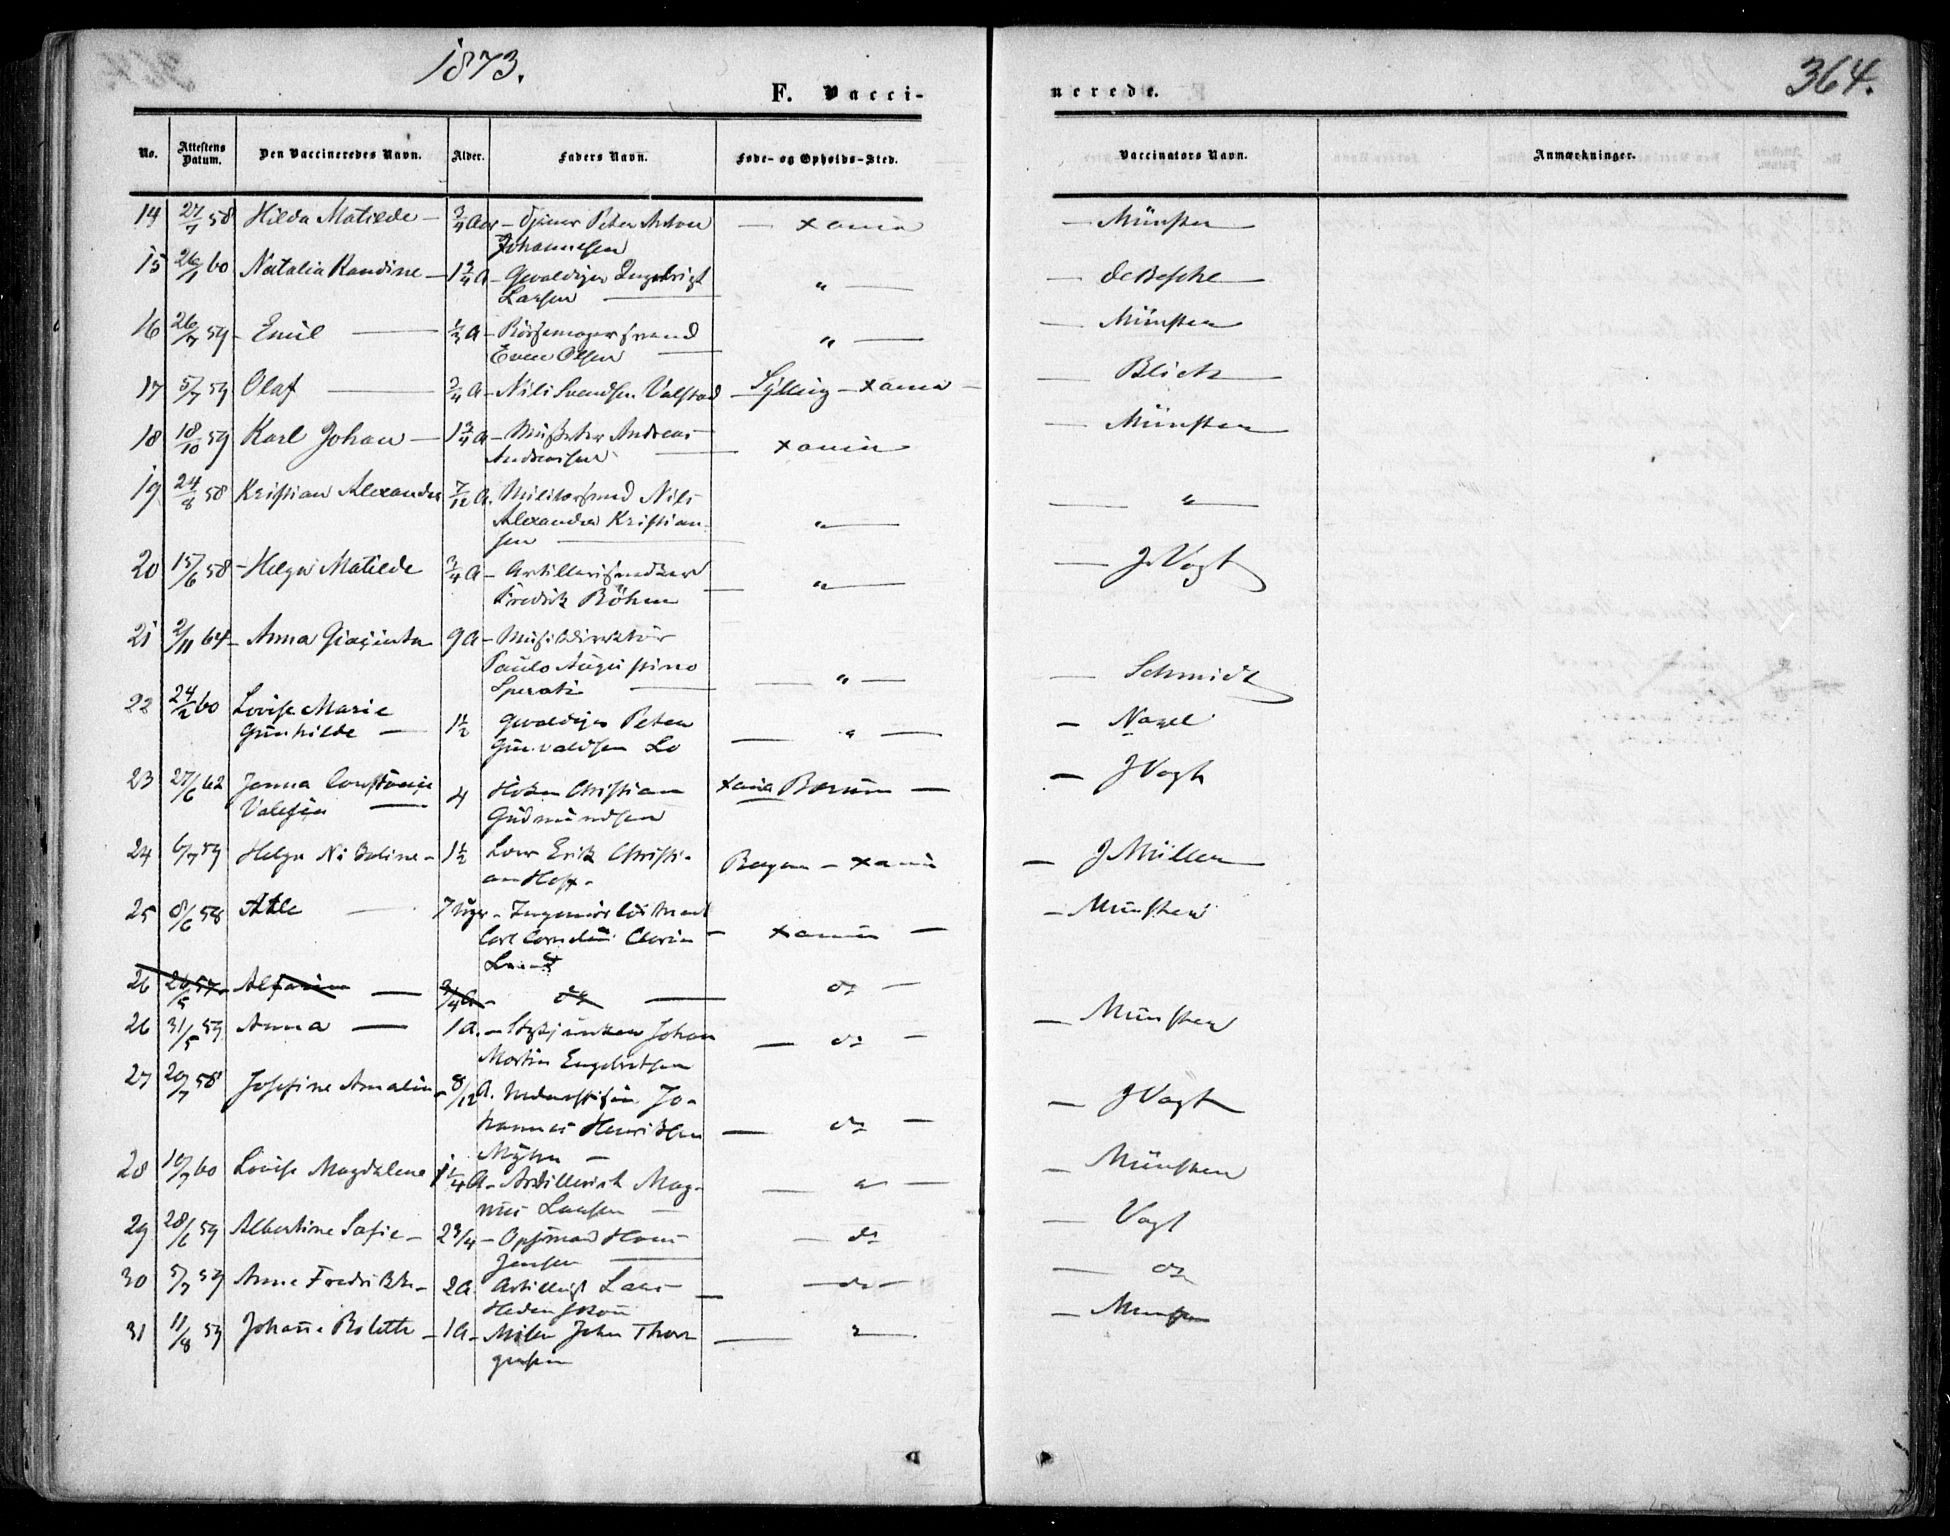 1873.
364.
F. Vacci-
nerede.
No.
Attestens Datum.
Den Vaccineredes Navn.
Alder.
Faders Navn.
Føde- og Opholds-Sted.
Vaccinators Navn.
Anmærkninger.
14 27/7 58 Hilda Matilde — 3/4 Aar — Peter Anton — Xania — Münster
Johannesen
15 26/1 60 Natalia Randine — 1 3/4 A — Gevaldiger Engebrigt
Larsen — " — deBesche
16 26/7 59 — Emil — 1/3 A — Bössemagersvend — Münster
Even Olsen — " —
17 5/7 59 Olaf — 3/4 A — Nils Svendsen Valstad — Sylling — Xania — Blich
18 18/10 59 Karl Johan — 1 3/4 A — Musketer Andreas — Münster
Andreasen — Xania
19 24/8 58 Kristian Alexander 7/12 A. Nils — " —
Alexander Kristian-
sen — " —
20 15/6 58 — Helga Matilde 3/4 A — — J Vogt
Fredrik Böhm — " —
21 2/11 64 — Anna Giacinta 9 A — Musikdirektör
Paulo Augustino
Sperati — " — — Schmidt
22 24/2 60 Lovise Marie
Gunhilde — 1 1/2 Gevaldiger Peter — Nagel
Gunvaldsen Lo — " —
23 27/6 62 Janna Constance 4 Christian Xania Bærum — — J Vogt
Gudmundsen
24 6/7 59 Helga Nikoline — 1 1/2 Erik Christi-
an — Bergen — Xania — J Müller
25 8/6 58 Atle — 7 Uger — Ingeniör — Münster
Carl Cornelius — Xania —
26 26/5 57 — 3/4 A — do — do —
26 31/5 59 Anna — 1 A. — Johan — do — — Münster
Martin Engebretsen
27 20/7 58 Josefine Amalie — 8/12 A. Jo-
hannes Henriksen — do — — J Vogt
Myhre —
28 10/7 60 Lovise Magdalene 1 1/4 A — Artillerist Mag-
nus Larsen — " — — Münster
29 28/6 59 Albertine Sofie — 2 3/4 — Hans — do — Vogt
Jensen —
30 5/7 59 Anne Fredrikke — 2 A. Lars — — do — — do
31 11/8 59 Johanne Bolette — 1 A — John Thor — " — Münster
gersen